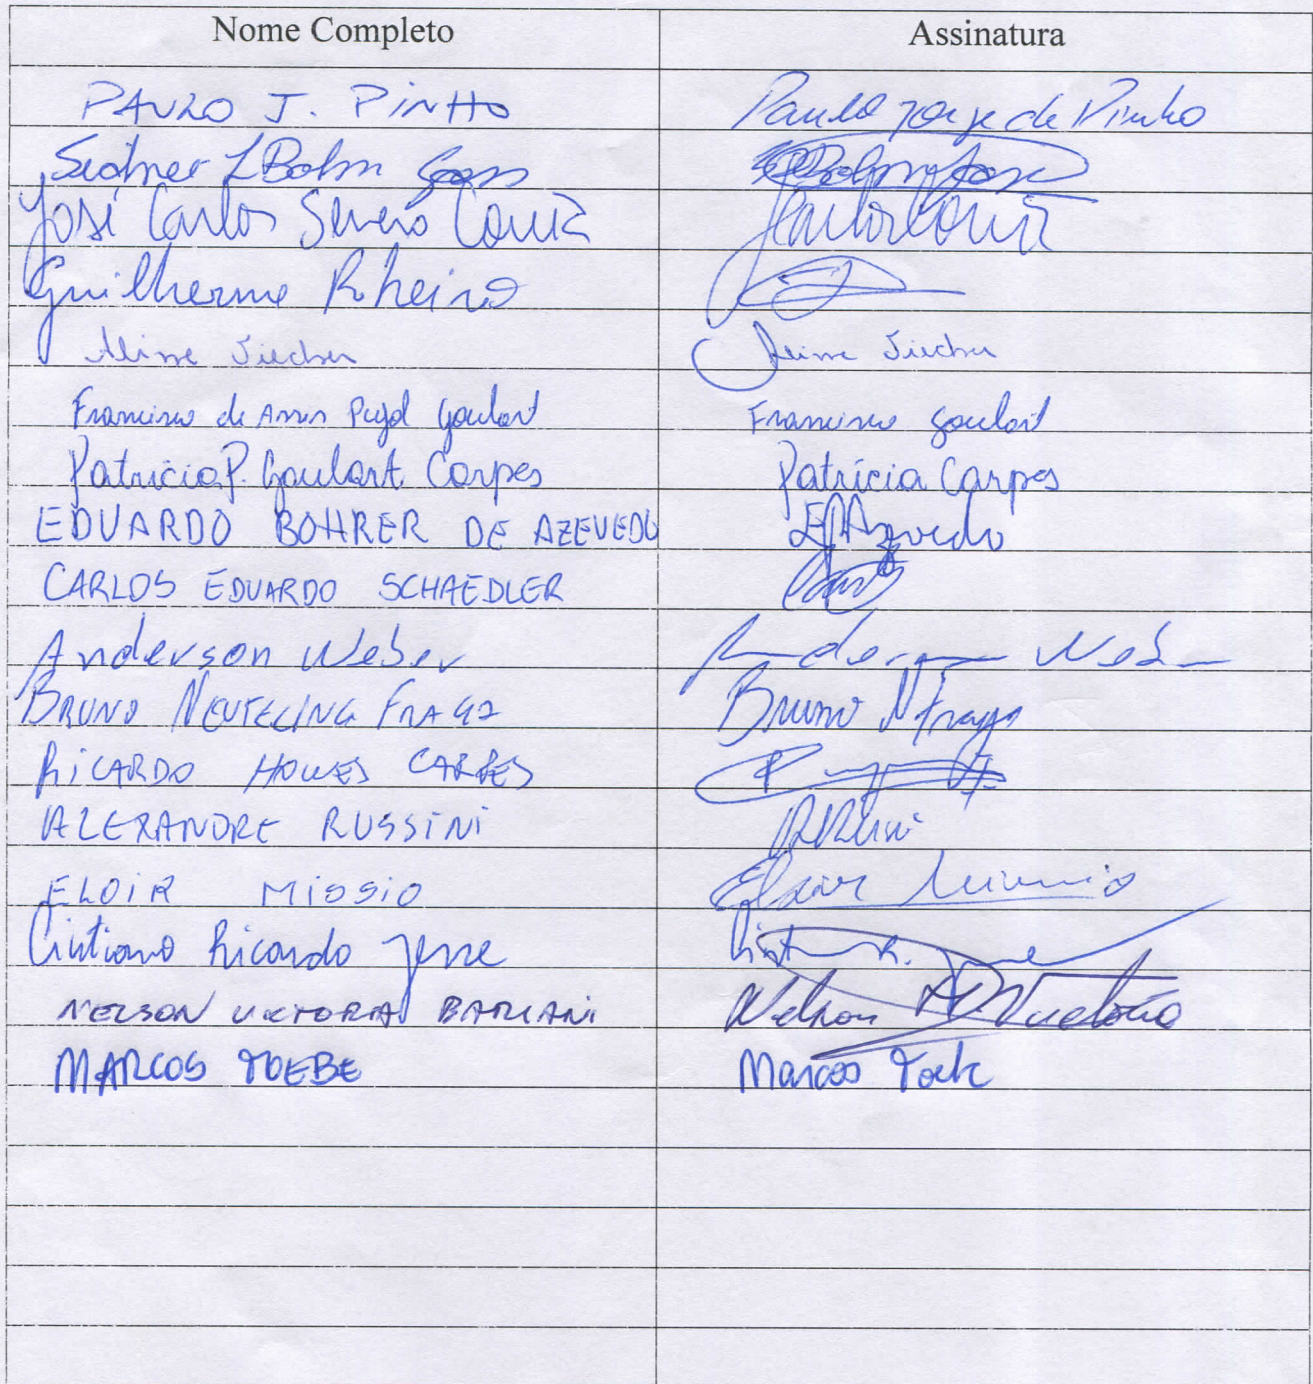 Nome Completo Assinatura
PAULO J. PINHO Paulo Jorge de Pinho
Sidnei L Bohn Gass Bohn Gass
José Carlos Severo Corrêa JCarlosCorrêa
Guilherme Ribeiro
Aline Tiecher Aline Tiecher
Francisco de Assis Pujol Goulart Francisco Goulart
Patrícia P. Goulart Carpes Patrícia Carpes
EDUARDO BOHRER DE AZEVEDO EBAzevedo
CARLOS EDUARDO SCHAEDLER
Anderson Weber Anderson Weber
BRUNO NEUTZLING FRAGA Bruno N Fraga
RICARDO HOWES CARPES
ALEXANDRE RUSSINI
ELOIR MISSIO Eloir Missio
Cristiano Ricardo Jesse Crist R. Jesse
NELSON VICTORIA BARIANI Nelson Victoria
MARCOS TOEBE Marcos Toebe